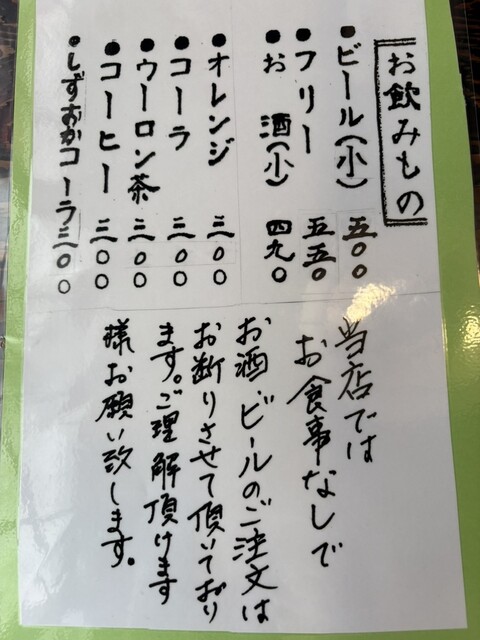 お飲みもの
●ビール(小) 五〇〇
●フリー 五五〇
●お酒(小) 四九〇
●オレンジ 三〇〇
●コーラ 三〇〇
●ウーロン茶 三〇〇
●コーヒー 三〇〇
●しずおかコーラ三〇〇
当店では
お食事なしで
お酒ビールのご注文は
お断りさせて頂いており
ます。ご理解頂けます
様お願い致します。